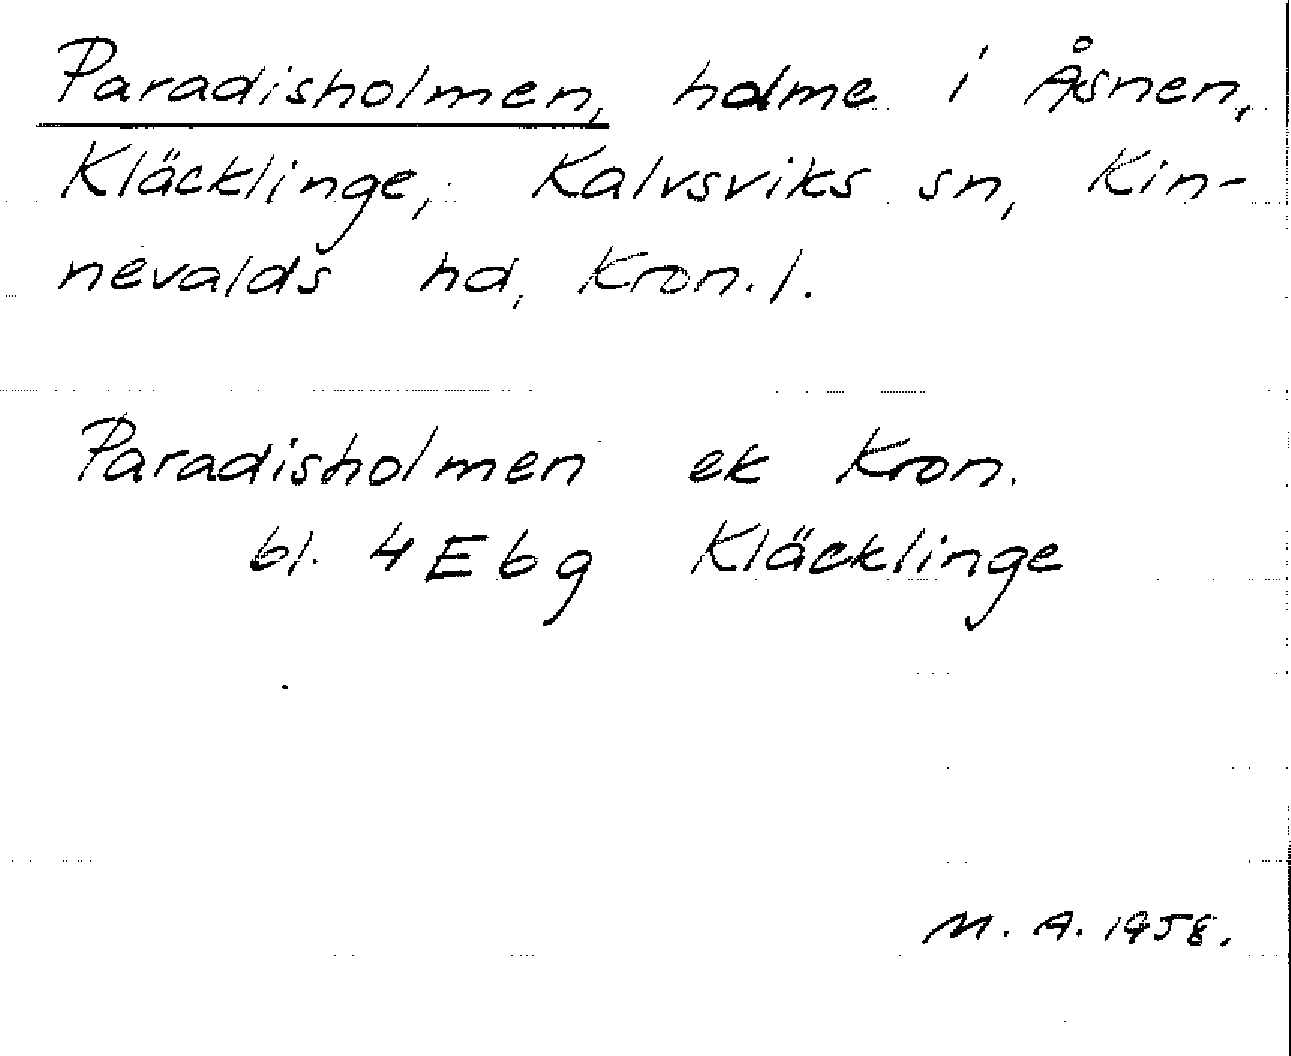 Paradisholmen, holme i Åsnen,
Kläcklinge, Kalvsviks sn, Kin-
nevalds hd, Kron.l.
Paradisholmen ek Kron.
bl. 4 E b g Kläcklinge
M. A. 1958.